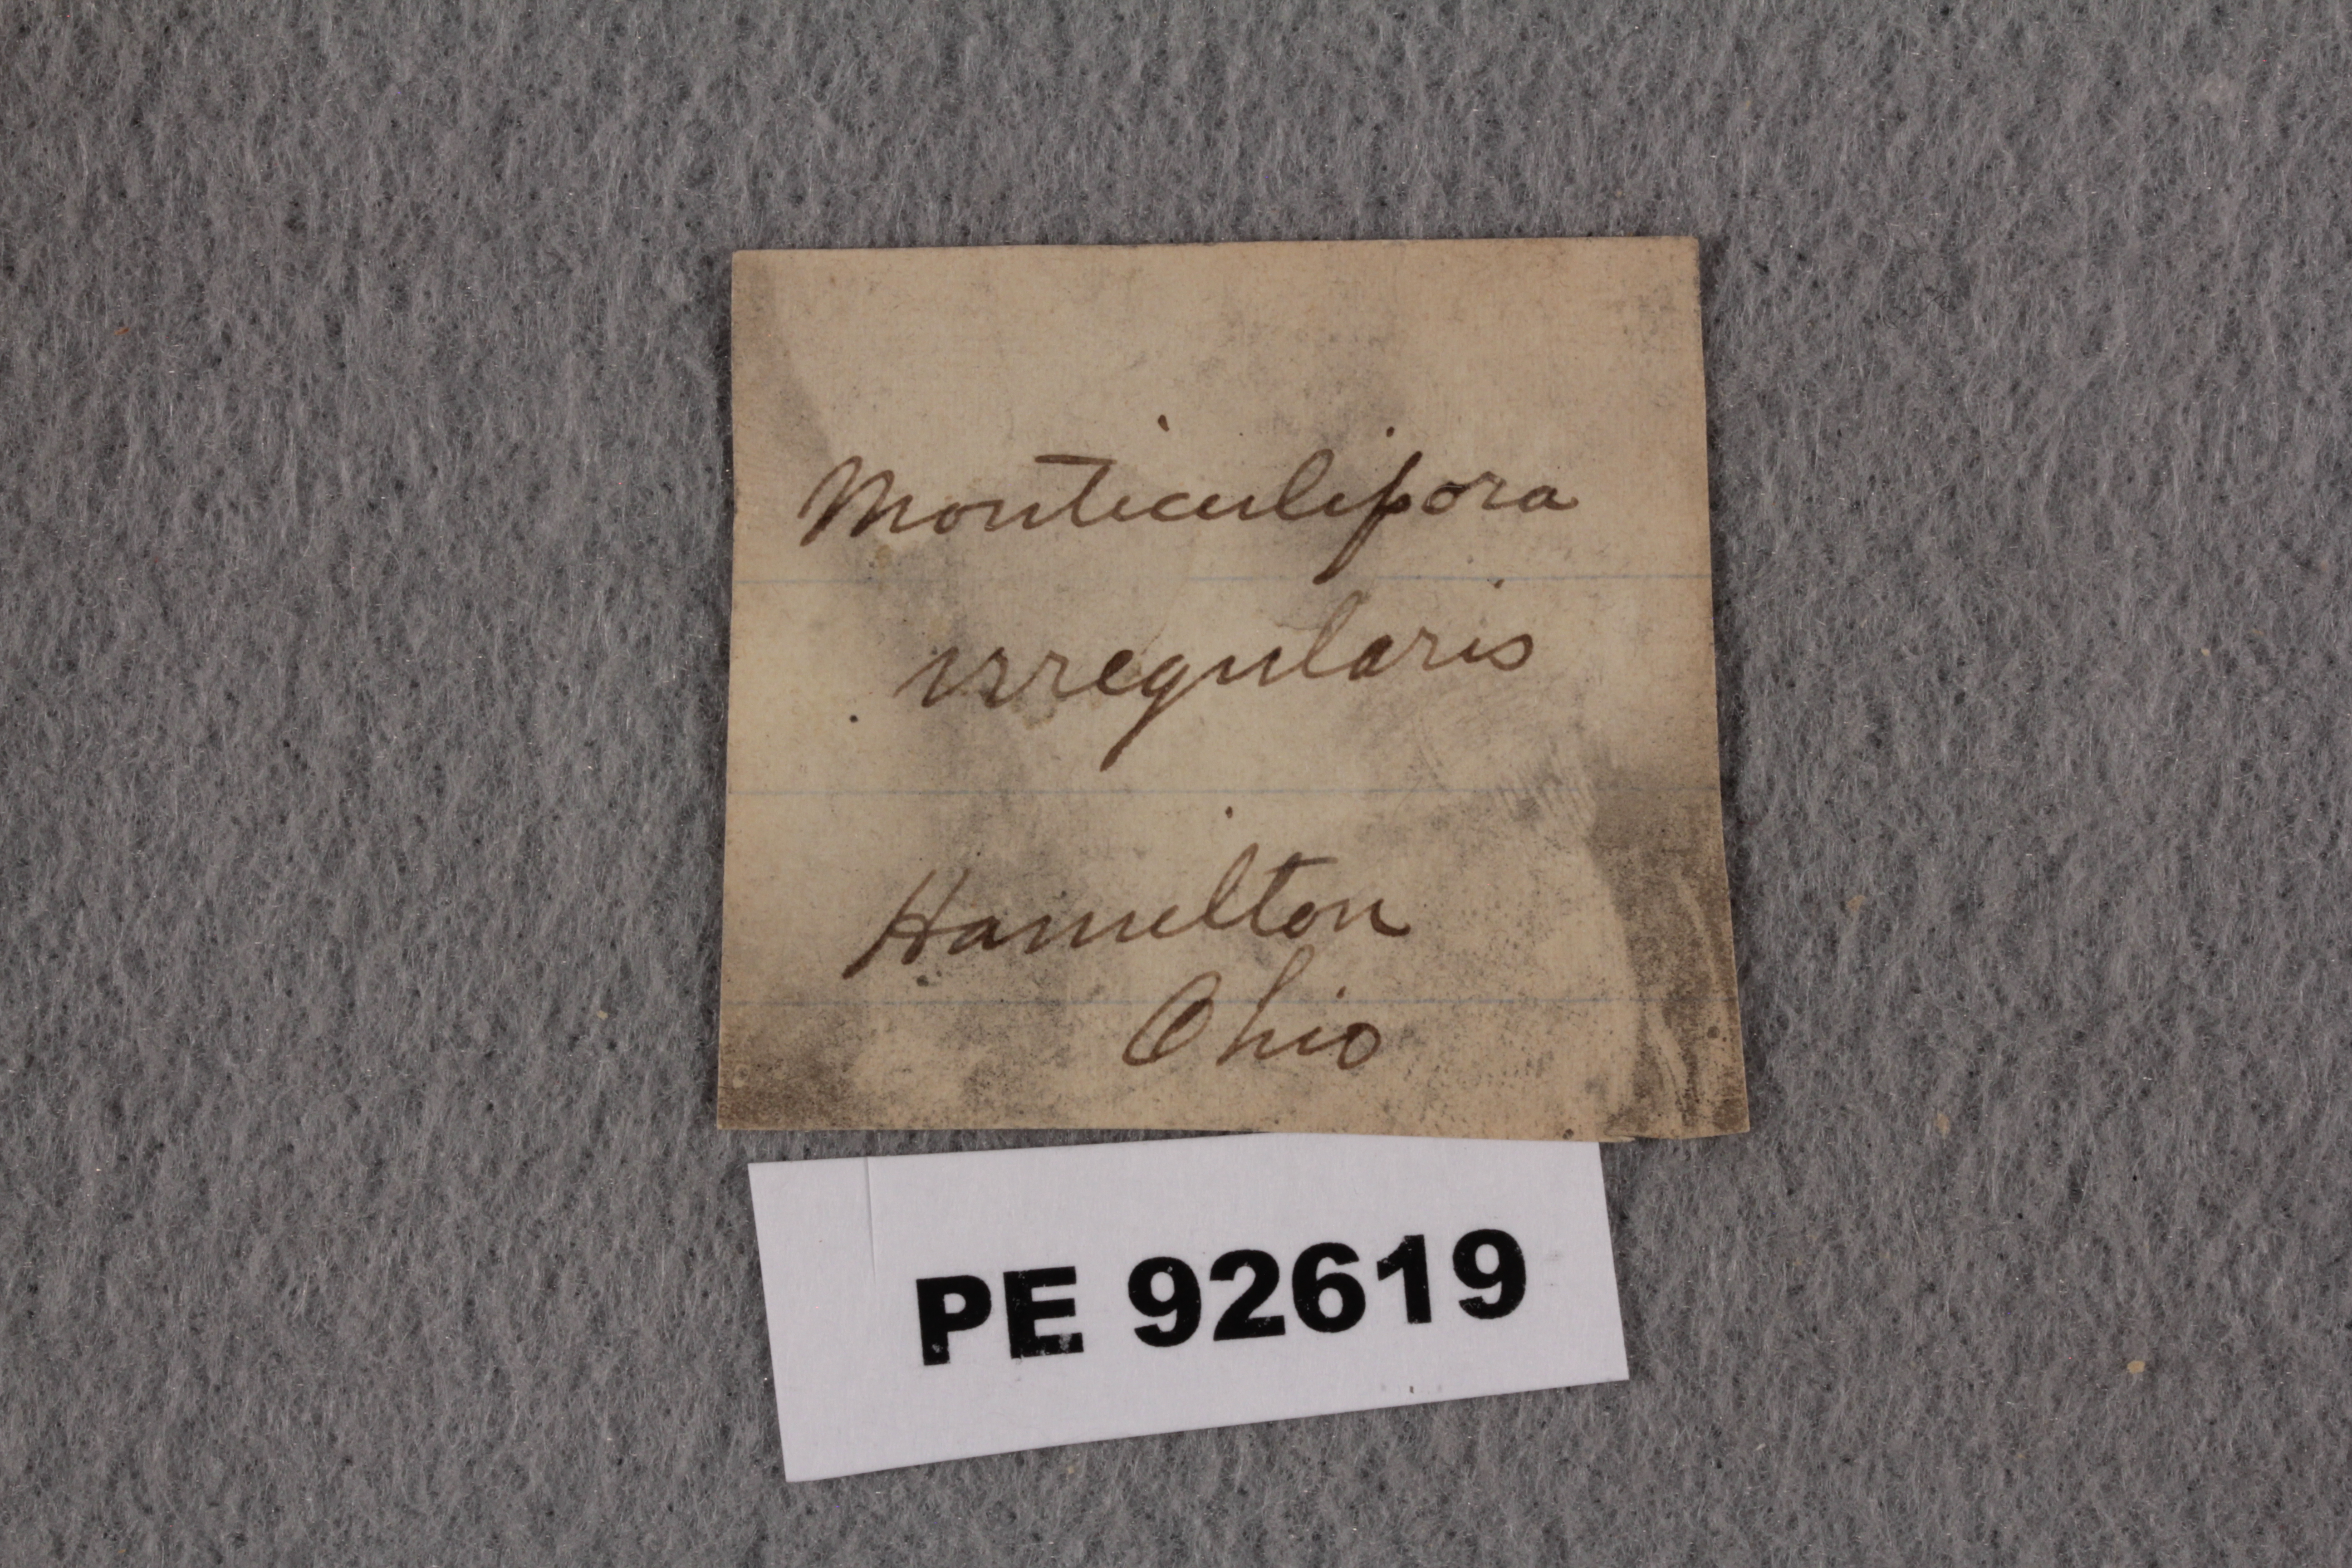 Monticulipora
irregularis
Hamilton
Ohio
PE 92619